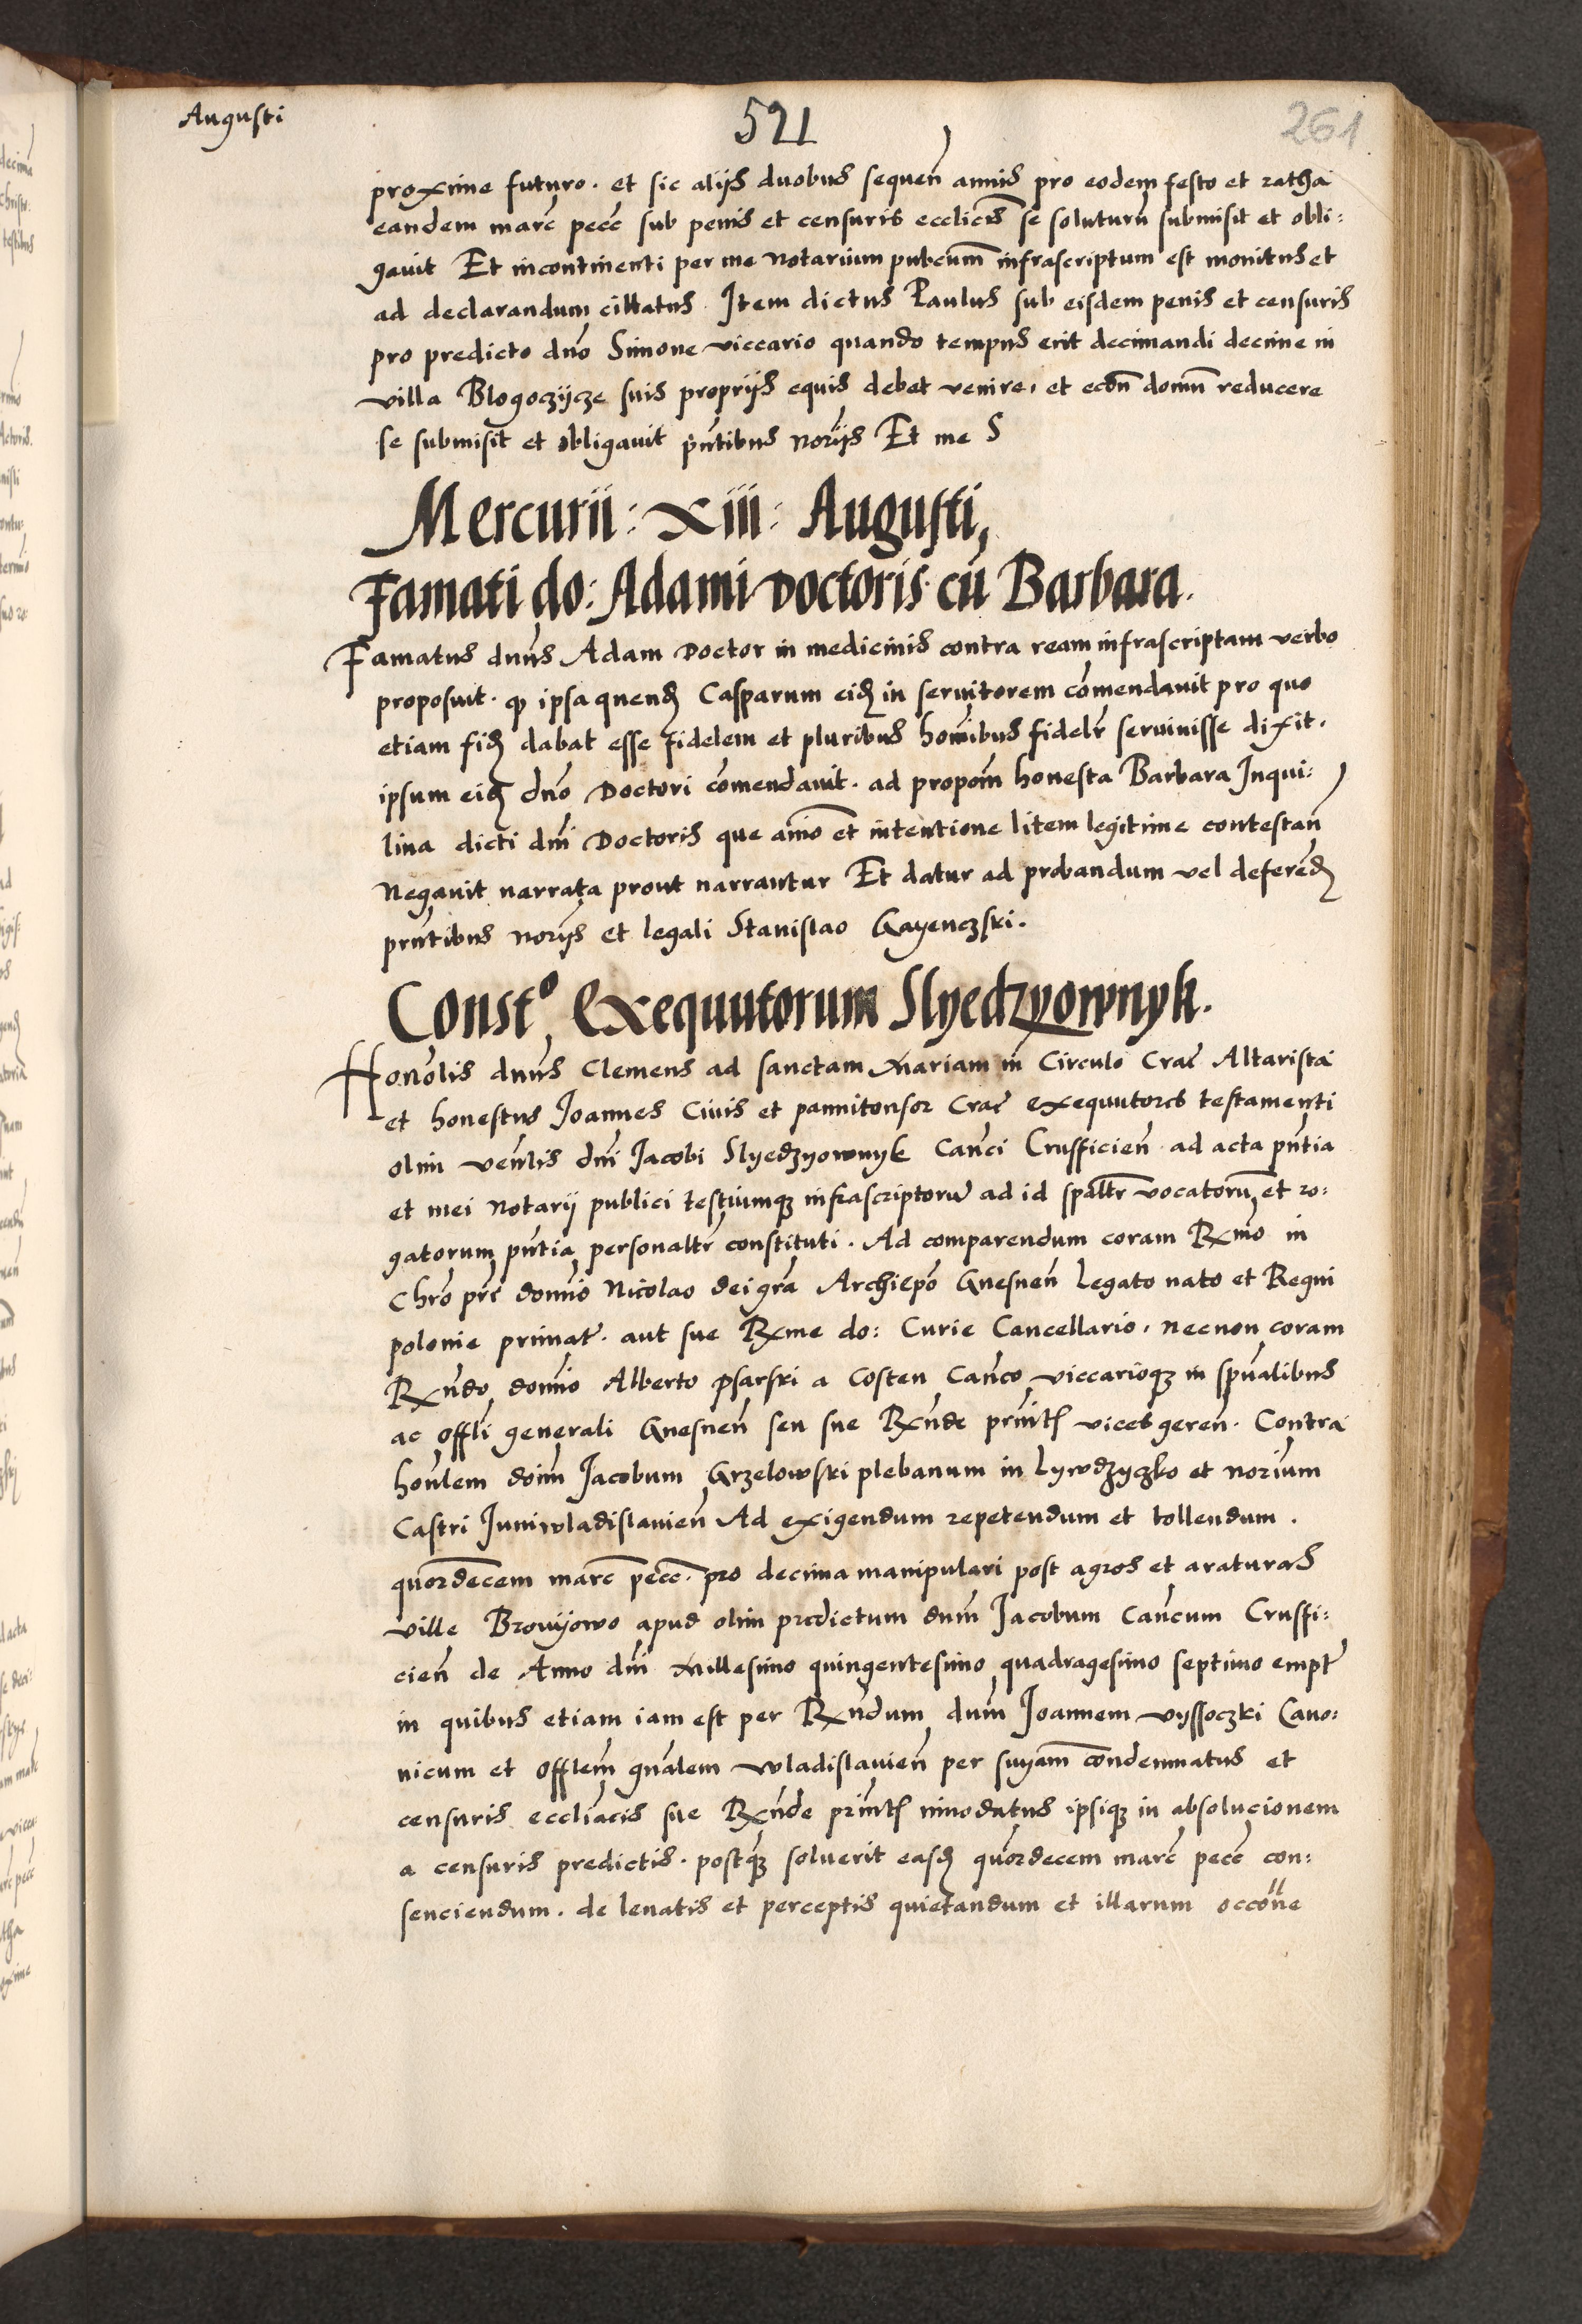 Augusti
521
261
proxime futuro. et sic alijs duobus sequen̄ annis pro eodem festo et ratha
eandem marc̄ pecc̄ sub penis et censuris eccliēis se soluturū submisit et obli:
gavit Et incontinenti per me Notarium pubcum̄ infrascriptum est monitus et
ad declarandum cittatus Item dictus Paulus sub eisdem penis et censuris
pro predicto dno̅ Simone viccario quando tempus erit decimandi decime in
villa Blogoczycze suis proprijs equis debet venire, et econ̄ domū reducere
se submisit et obligavit pn̄tibus norijs Et me S
Mercurii: xiii: Augusti,
Famati do: Adami Doctoris cū Barbara.
Famatus dn̄us Adam Doctor in medicinis contra ream infrascriptam verbo
proposuit. ꝙ ipsa quendꝫ Casparum eidꝫ in servitorem com̄endavit pro quo
etiam fidꝫ dabat esse fidelem et pluribus hoīibus fidelr̄ servivisse dixit.
ipsum eidꝫ dno̅ Doctori com̄endavit. ad propom̄ honesta Barbara Inqui:
lina dicti dnī Doctoris que aīo et intentione litem legitime contestan̄
Negavit narrata prout narrantur Et datur ad probandum vel deferēdꝫ
prn̄tibus norijs et legali Stanislao Gayenczski.
Constᵒ, Exequutorum Slyedzyownyk.
Hono̅lis dn̄us Clemens ad sanctam Mariam in Circulo Crac̄ Altarista
et honestus Joannes Civis et pannitonsor Crac̄ exequutores testamenti
olim ven̄lis dnī Jacobi Slyedzyownyk Can̄ci Crusficien̄ ad acta pn̄tia
et mei Notarij publici testiumqꝫ infrascriptorū ad id spāltr̄ vocatorū et ro:
gatorum pn̄tia personaltr̄ constituti. Ad comparendum coram Rxmo̅ in
Chro̅ prē domīo Nicolao dei gra̅ Archiepo̅ Gnesnen̄ Legato nato et Regni
polonie primat̄. aut sue Rxme do: Curie Cancellario, necnon coram
Rxn̄do domīo Alberto psarski a Costen Can̄co viccarioqꝫ in spūalibus
ac Offli̅ generali Gnesnen̄ seu sue Rxn̄de prnīt̄ vices geren̄. Contra
hon̄lem doīm Jacobum Grzelowski plebanum in Lywdzyczko et norīum
Castri Juniwladislavien̄ Ad exigendum repetendum et tollendum.
quordecem marc̄ pecc̄. pro decima manipulari post agros et araturas
ville Brovyowo apud olim predictum dnūm Jacobum Can̄cum Crusfi:
cien̄ de Anno dnī Millesimo quingentesimo quadragesimo septimo empt̄
in quibus etiam iam est per Rxn̄dum dnūm Joannem vyssoczki Cano:
nicum et Offlem̄ gn̄alem Wladislavien̄ per suyam̄ condemnatus et
censuris eccliācis sue Rxn̄de prīnt̄ innodatus ipsiqꝫ in absolucionem
a censuris predictis. postqꝫ solverit easdꝫ quordecem marc̄ pecc̄ con:
senciendum. de levatis et perceptis quietandum et illarum occo̅ne